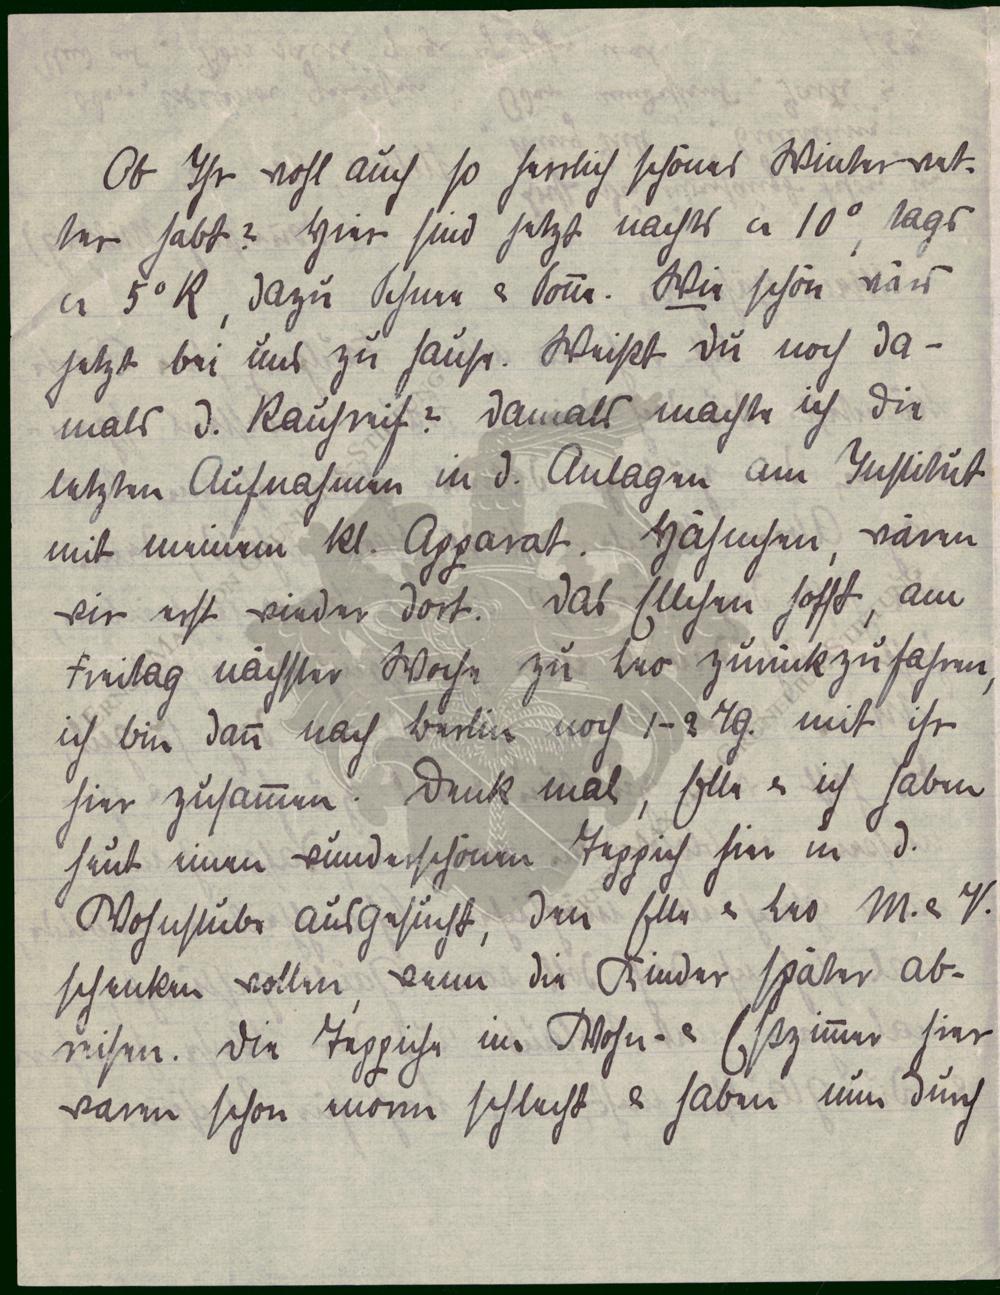 Ob Ihr wohl auch so herrlich schönes Winterwet-
ter habt? Hier sind jetzt nachts ca 10°, tags
ca 5° R, dazu Schnee & Son̅e. Wie schön wärs
jetzt bei uns zu Hause. Weißt Du noch da-
mals d. Rauhreif? Damals machte ich die
letzten Aufnahmen in d. Anlagen am Institut
mit meinem kl. Apparat. Hähnchen, wären
wir erst wieder dort. Das Ellchen hofft, am
Freitag nächster Woche zu Leo zurückzufahren,
ich bin dan̅ nach Berlin noch 1-2 Tg. mit ihr
hier zusam̅en. Denk mal, Elle & ich haben
heut einen wunderschönen Teppich hier in d.
Wohnstube ausgesucht, den Elle & Leo M. & V.
schenken wollen, wenn die Kinder später ab-
reisen. Die Teppiche im Wohn- & Eßzim̅er hier
waren schon enorm schlecht & haben nun durch